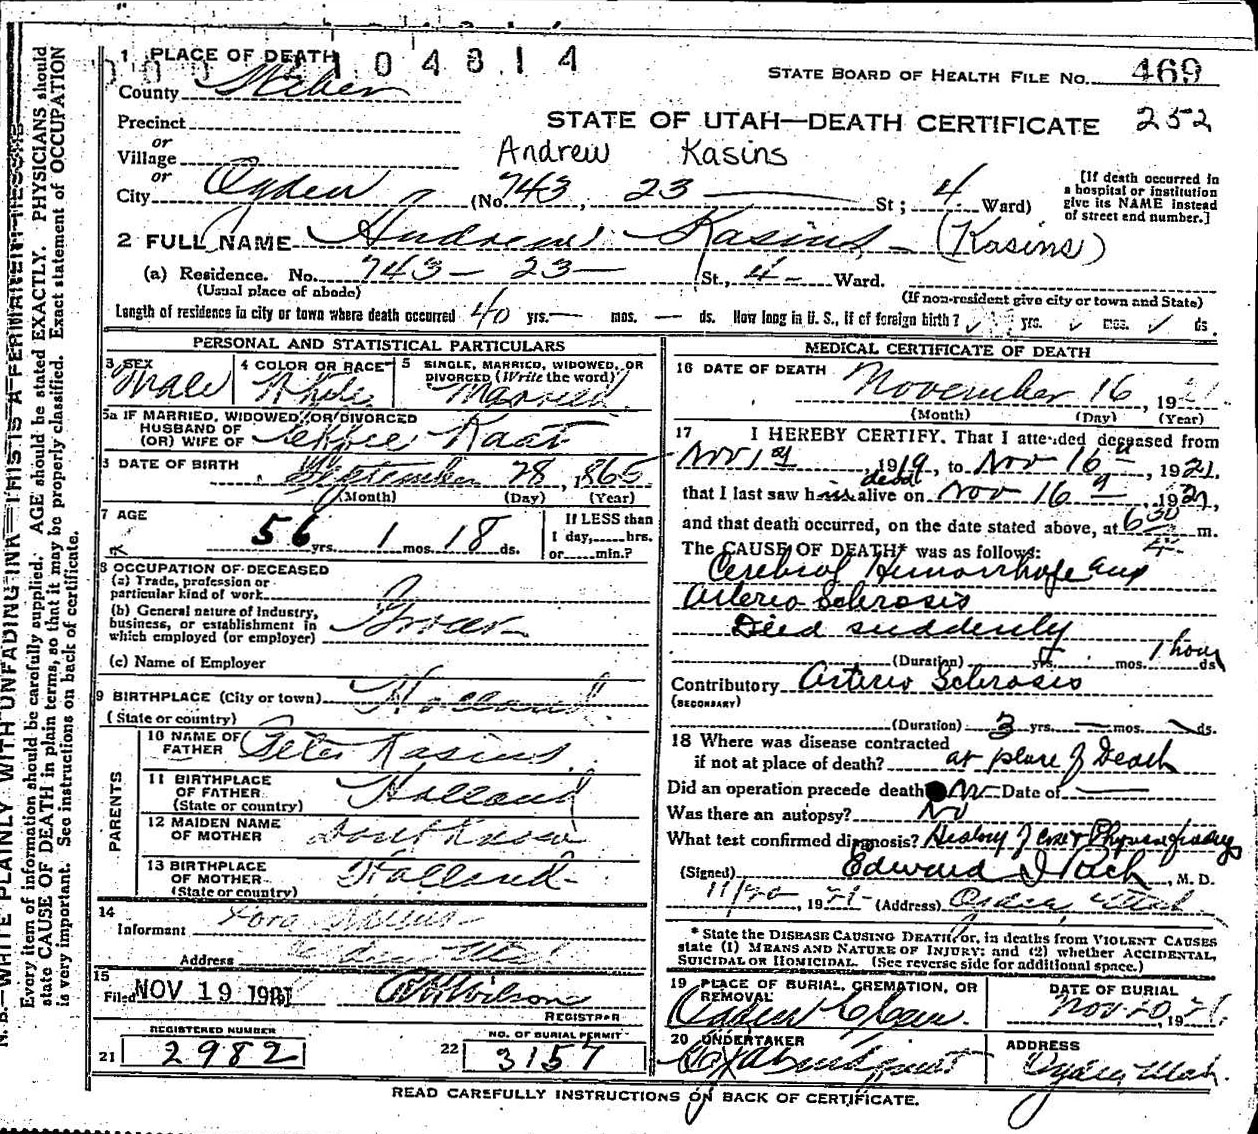 1 PLACE OF DEATH 104814
STATE BOARD OF HEALTH FILE NO. 469
County Weber
STATE OF UTAH—DEATH CERTIFICATE 252
Precinct
or
Village
Andrew Kasins
or
City Ogden (No. 743, 23 St; 4 Ward)
[If death occurred in a hospital or institution give its NAME instead of street and number.]
2 FULL NAME Andrew Kasins (Kasins)
(a) Residence. No. 743 - 23 - St., 4 - Ward.
(Usual place of abode)
(If non-resident give city or town and State)
Length of residence in city or town where death occurred 40 yrs. — mos. — ds. How long in U. S., if of foreign birth? yrs. mos. ds.
PERSONAL AND STATISTICAL PARTICULARS
3 SEX Male
4 COLOR OR RACE White
5 SINGLE, MARRIED, WIDOWED, OR DIVORCED (Write the word) Married
5a IF MARRIED, WIDOWED, OR DIVORCED
HUSBAND OF
(OR) WIFE OF
DATE OF BIRTH September 28, 1865
(Month) (Day) (Year)
7 AGE
56 yrs. 1 mos. 18 ds.
If LESS than
1 day, hrs.
or min.?
8 OCCUPATION OF DECEASED
(a) Trade, profession or
particular kind of work
(b) General nature of industry,
business, or establishment in
which employed (or employer) Grocer
(c) Name of Employer
9 BIRTHPLACE (City or town) Holland
(State or country)
PARENTS
10 NAME OF
FATHER Peter Kasins
11 BIRTHPLACE
OF FATHER Holland
(State or country)
12 MAIDEN NAME
OF MOTHER
13 BIRTHPLACE
OF MOTHER Holland
(State or country)
14
Informant
Address
15
Filed NOV 19 1921 Wilson
REGISTRAR
REGISTERED NUMBER
21 2982
NO. OF BURIAL PERMIT
22 3157
MEDICAL CERTIFICATE OF DEATH
16 DATE OF DEATH November 16, 1921
(Month) (Day) (Year)
17 I HEREBY CERTIFY, That I attended deceased from
Nov 1st, 1919, to Nov 16th, 1921,
that I last saw him dead alive on Nov 16th, 1921,
and that death occurred, on the date stated above, at 6 30 m.
The CAUSE OF DEATH* was as follows:
Cerebral Hemorrhage and
Arterio Sclerosis
Died suddenly
(Duration) yrs. mos. 1 hour ds.
Contributory Arterio Sclerosis
(SECONDARY)
(Duration) 3 yrs. — mos. ds.
18 Where was disease contracted
if not at place of death? at place of Death
Did an operation precede death No Date of —
Was there an autopsy? No
What test confirmed diagnosis? History of case & Physical findings
(Signed) Edward I Rich, M. D.
11/20, 1921 (Address) Ogden, Utah
* State the DISEASE CAUSING DEATH, or, in deaths from VIOLENT CAUSES
state (1) MEANS AND NATURE OF INJURY; and (2) whether ACCIDENTAL,
SUICIDAL OR HOMICIDAL. (See reverse side for additional space.)
19 PLACE OF BURIAL, CREMATION, OR REMOVAL
Ogden
DATE OF BURIAL
Nov. 20, 1921
20 UNDERTAKER
ADDRESS
Ogden Utah.
READ CAREFULLY INSTRUCTIONS ON BACK OF CERTIFICATE.
N. B.—WRITE PLAINLY WITH UNFADING INK—THIS IS A PERMANENT RECORD
Every item of information should be carefully supplied. AGE should be stated EXACTLY. PHYSICIANS should
state CAUSE OF DEATH in plain terms, so that it may be properly classified. Exact statement of OCCUPATION
is very important. See instructions on back of certificate.